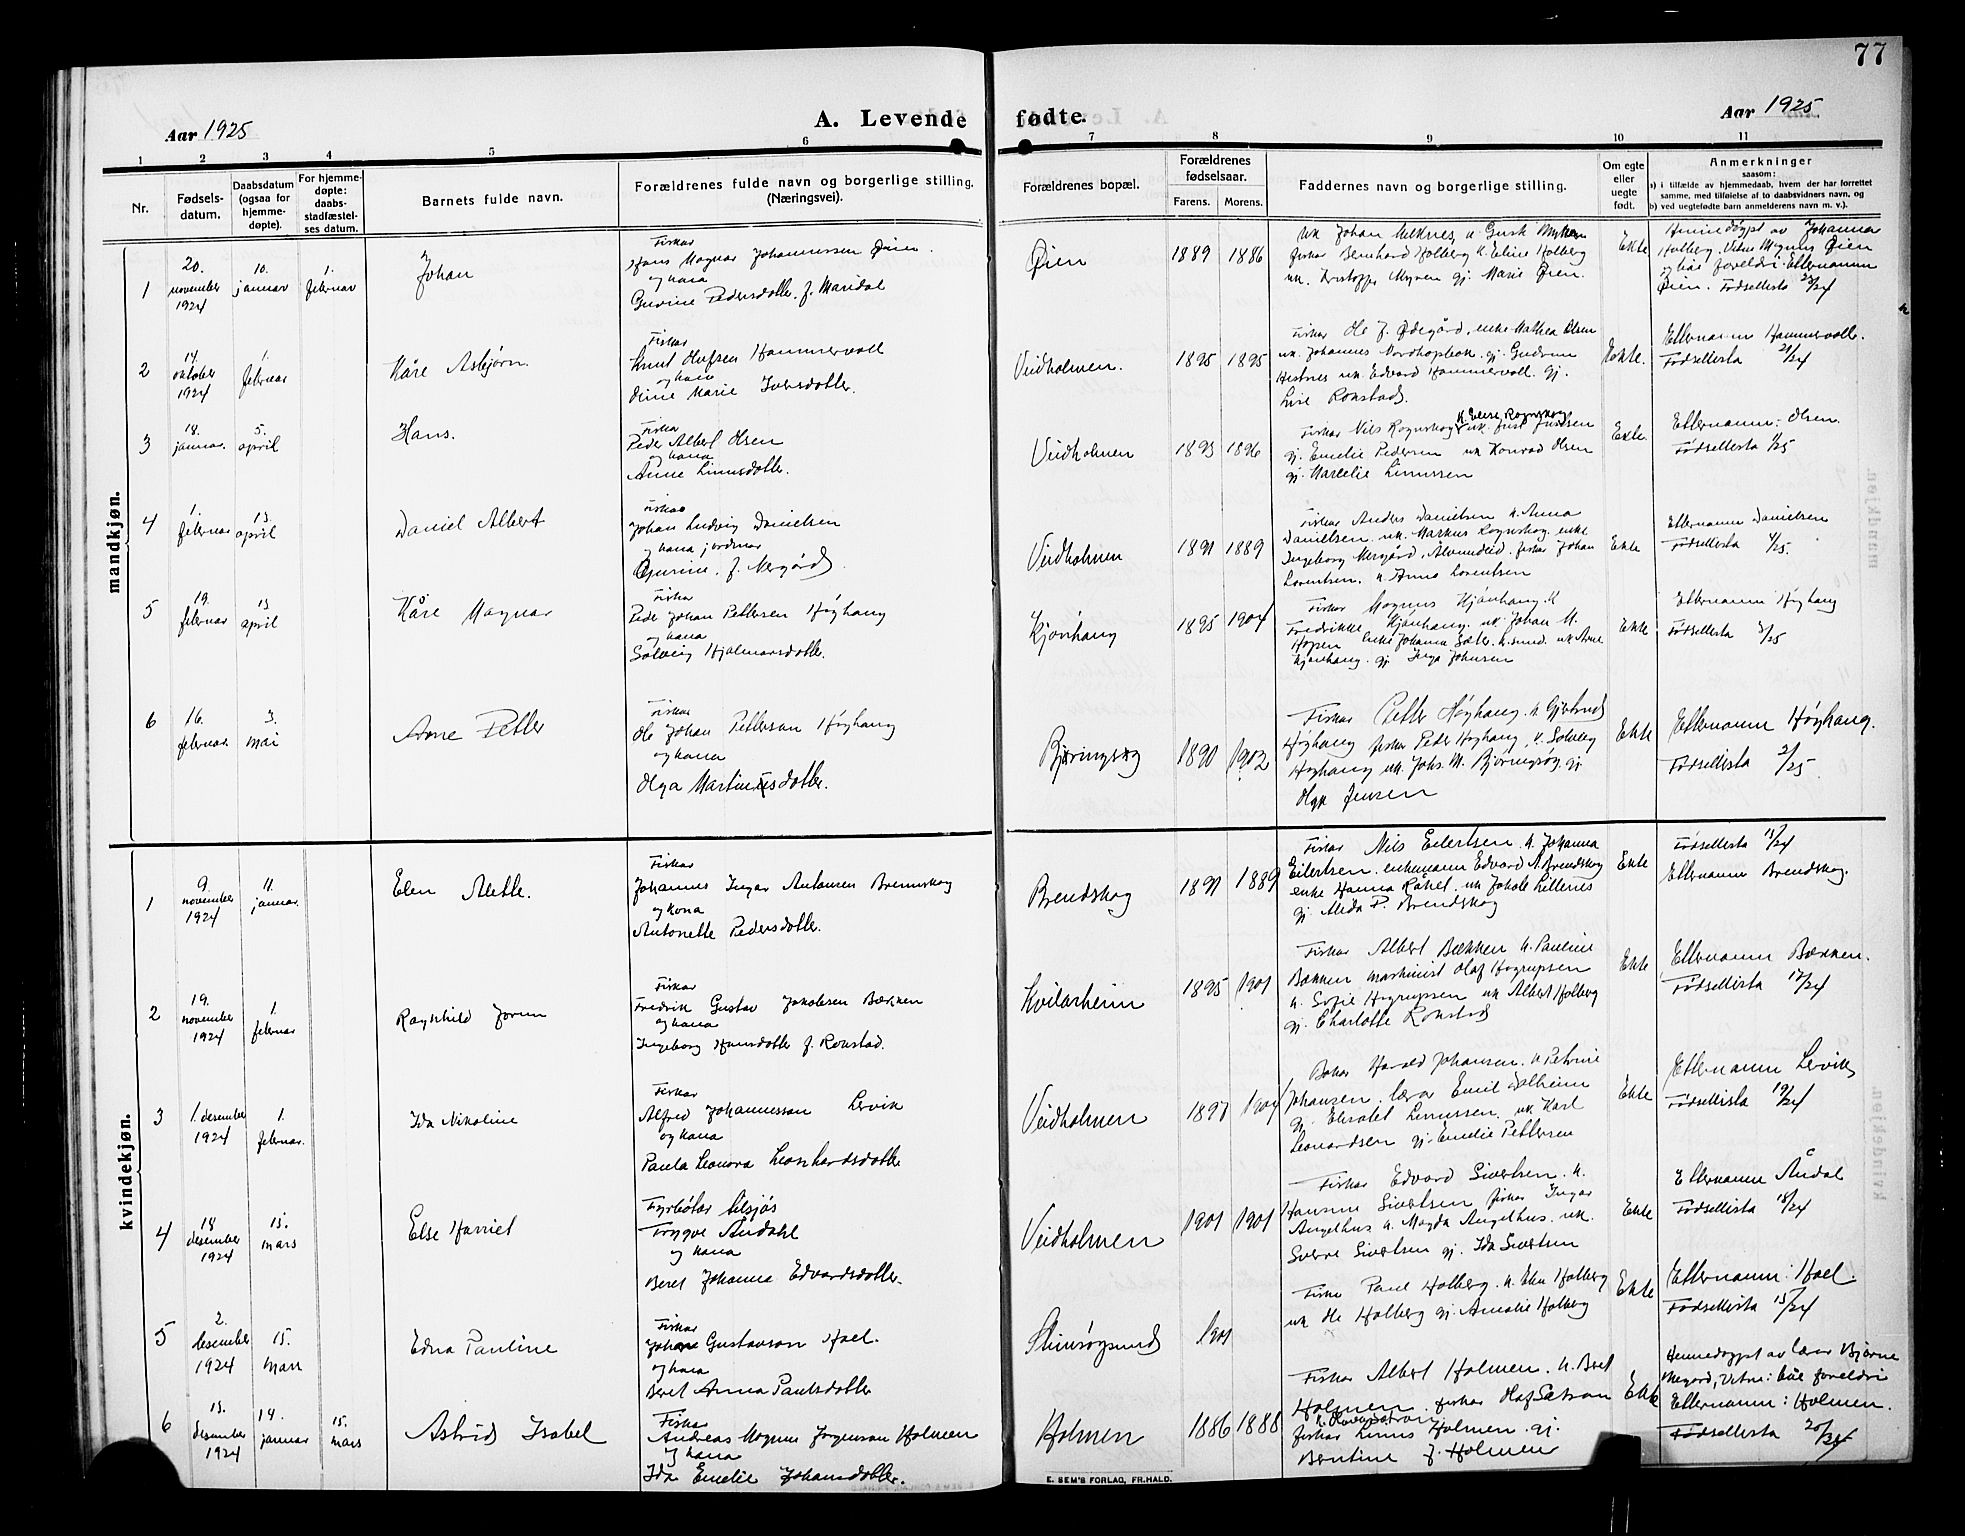 77
Aar 1925
A. Levende fødte.
Aar 1925
1 2 3 4 5 6 7 8 9 10 11
Nr.
Fødsels-
datum.
Daabsdatum
(ogsaa for
hjemme-
døpte).
For hjemme-
døpte:
daabs-
stadfæstel-
ses datum.
Barnets fulde navn.
Forældrenes fulde navn og borgerlige stilling.
(Næringsvei).
Forældrenes bopæl.
Forældrenes
fødselsaar.
Farens. Morens.
Faddernes navn og borgerlige stilling.
Om egte
eller
uegte
født.
Anmerkninger
saasom:
a) i tilfælde av hjemmedaab, hvem der har forrettet
samme, med tilføielse af to daabsvidners navn, og
b) ved uegtefødte barn anmelderens navn m. v.).
mandkjøn.
1
20.
november
1924
10.
januar
1.
februar
Johan
Fiskar
Hans Magnus Johannessen Øien.
og kona
Gurine Pedersdotter. f. Maridal
Øien
1889 1886
fiskar Bernhard Holberg k. Eline Holberg
uk. Kristoffer Myren gj. Marie Øien.
Ekte
Heimedøypt av Johanna
Holberg. Vitne Magnus Øien
og bæe foreldri. Etternamn
Øien. Fødsellista 23/24
2
14.
oktober
1924
1.
februar
Kåre Asbjørn.
Fiskar
Knut Olufsen Hammervoll
og kona
Oline Marie Iversdotter.
Veidholmen.
1895 1895
Fiskar Ole J. Ødegård, enke Mathea Olsen
uk. Johannes Nordhopbok. gj. Gudrun
Hestnes uk. Edvard Hammervoll. gj.
Lise Ronstad.
Ekte.
Etternamn Hammervoll.
Fødsellista 21/24
3
18.
januar.
5.
april
Hans.
Fiskar
Peder Albert Olsen
og kona
Anne Linusdotter.
Veidholmen
1893 1896
k. Elise Rognskog
Fiskar Nils Rognskog uk. Just Justsen
gj. Emelie Pedersen uk Konrad Olsen
gj. Marselie Linussen
Ekte.
Etternamn: Olsen.
Fødsellista 1/25
4
1.
februar
13
april
Daniel Albert
Fiskar
Johan Ludvig Danielsen
og kona jordmor
Gjurine. f. Nergård.
Veidholmen
1891 1889
Fiskar Anders Danielsen k. Anna
Danielsen. uk. Markus Rognskog. enke
Ingeborg Nergård, Alvundeid. fiskar Johan
Lorentsen. k. Anna Lorentsen
Ekte
Etternamn Danielsen
Fødsellista 4/25.
5
19.
februar
13
april
Kåre Magnar
Fiskar
Peder Johan Pettersen Höghaug
og kona
Solveig Hjalmarsdotter.
Kjönhaug
1895 1904
Fiskar Magnus Kjönhaug. k
Fredrikke Kjönhaug. uk. Johan M.
Hopen enke Johanna Sæter. k.sund. uk Arne
Kjönhaug. gj Inga Johnsen
Ekte
Etternamn Höghaug
Fødsellista 3/25
6
16.
februar.
3.
mai
Arne Petter
Fiskar
Ole Johan Petterson Höyhaug
og kona
Olga Martinusdotter.
Björingsøg
1890 1902
Fiskar Petter Höyhaug. k Gjertrud
Höyhaug fiskar Peder Höyhaug. k. Solveig
Höyhaug uk. Johs. M. Björingsøg. gj.
Olga Jensen
Ekte
Etternamn Höyhaug.
Fødsellista 2/25.
kvindekjøn.
1
9.
november
1924
11.
januar.
Elen Alette.
Fiskar
Johannes Ingvar Antonsen Brennskog
og kona
Antonette Pedersdotter.
Brendskog
1891 1889
Fiskar Nils Eilertsen. k. Johanna
Eilertsen. enkemann Edvard A Brendskog
enke Hanna Råket. uk Jakob Lillenes
gj. Alida P. Brendskog
Ekte
Fødsellista 15/24
Etternamn Brendskog.
2
19.
november
1924
1.
februar
Ragnhild Jorun
Fiskar
Fredrik Gustav Jakobsen Bækken
og kona
Ingeborg Hansdotter f. Ronstad.
Kvilarheim
1895 1901
Fiskar Albert Bækken k. Pauline
Bækken maskinist Olaf Hogrupsen
k. Sofie Hogrupssen uk Albert Holberg
gj. Charlotte Ronstad
Ekte
Etternamn Bækken.
Fødsellista 17/24
3
1. desember
1924
1.
februar.
Ida Nikoline
Fiskar
Alfred Johannesson Lervik
og kona
Paula Leonora Leonhardsdotter
Veidholmen
1897 1904
Baker Harald Johansen. k Petrine
Johansen. lærar Emil Solheim
gj. Elisabet Linussen. uk Karl
Leonardsen gj. Emelie Pettersen
Ekte
Etternamn Lervik
Fødsellista 19/24
4
18
desember
1924
15.
mars
Else Harriet
Fyrbøtar tilsjøs
Trygve Åndahl
og kona
Beret Johanna Edvardsdotter.
Veidholmen
1901 1901
Fiskar Edvard Sivertsen. k.
Hansine Sivertsen fiskar Ingvar
Angelhus k. Magda Angelhus. uk.
Sverre Sivertsen gj. Ida Sivertsen
Ekte
Etternamn Åndal
Fødsellista 18/24
5
2.
desember
1924
15.
mars
Edna Pauline
Fiskar
Johan Gustavson Hoel.
og kona
Beret Anna Paulsdotter
Steinsøysund
1901
Fiskar Paul Holberg. k. Elen Holberg
uk Ole Holberg gj. Amalie Holberg
Ekte
Etternamn: Hoel.
Fødsellista 15/24
6
13.
desember
1924
14.
januar
15.
mars
Astrid Isabel
Fiskar
Andreas Magnus Jørgenson Holmen
og kona
Ida Emelie Johansdotter.
Holmen
1886 1888
Fiskar Albert Holmen. k. Beret
Holmen. fiskar Olaf Sætran
fiskar Linus Holmen. gj.
Bentine J. Holmen
Ekte
Heimedøypt av lærar Bjarne
Megard, Vitne: bæe foreldri
Etternamn: Holmen.
Fødsellista 20/24
E. SEM'S FORLAG, FR.HALD.